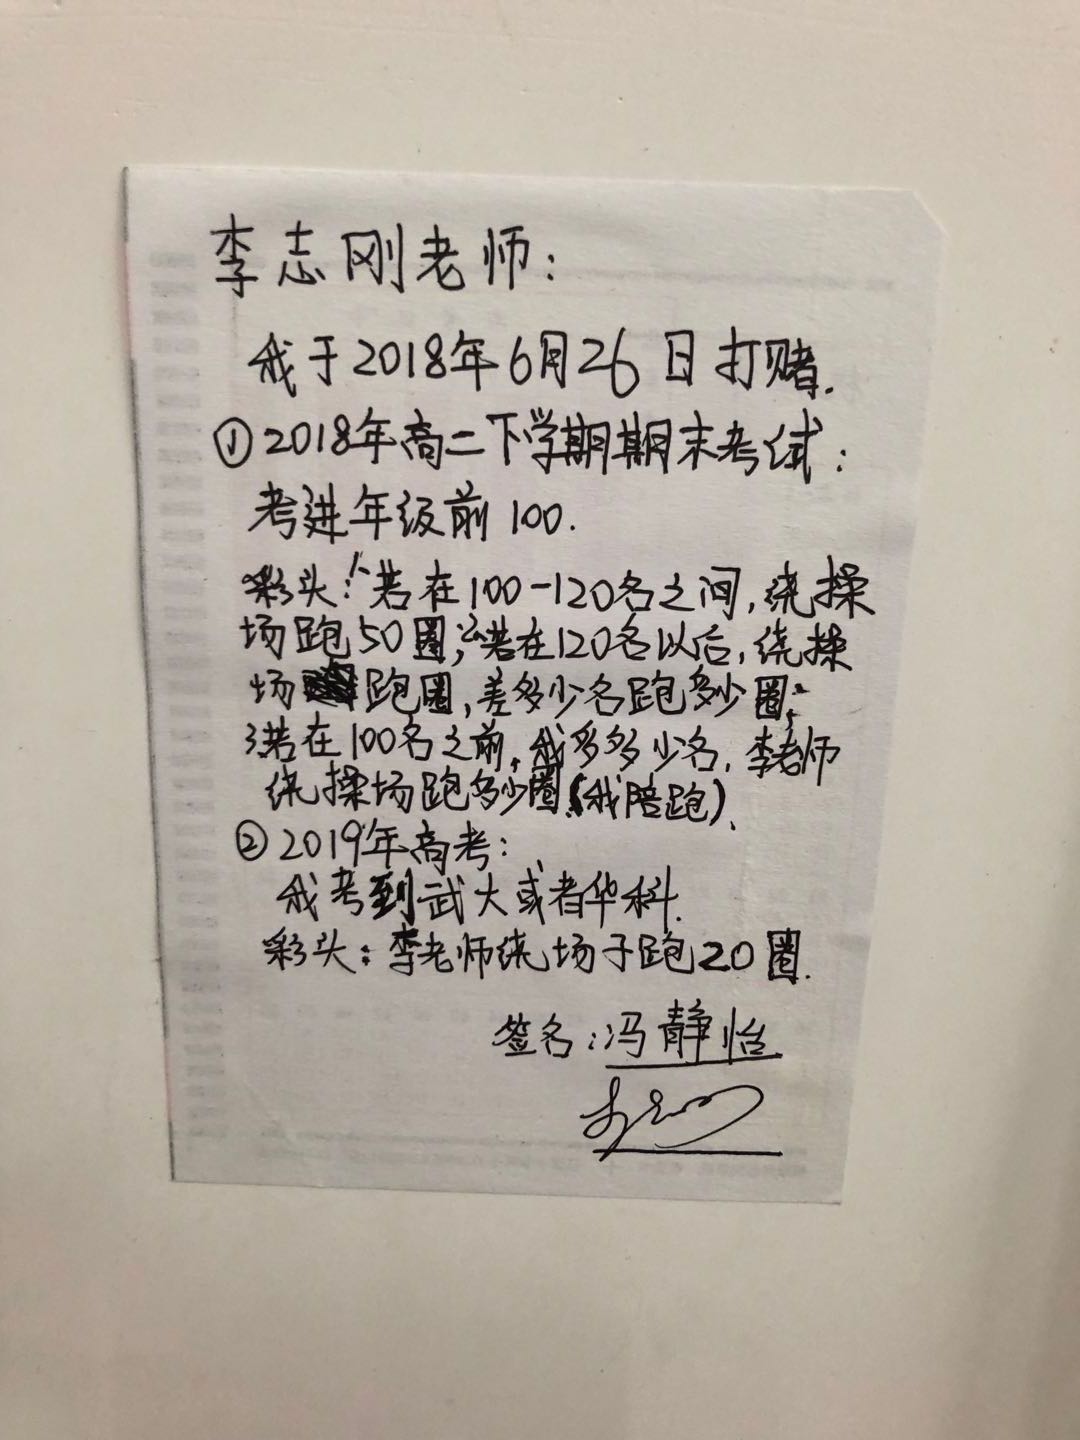 李志刚老师:
我于2018年6月26日打赌.
①2018年高二下学期期末考试:
考进年级前100.
彩头:1、若在100-120名之间,绕操
场跑50圈;2、若在120名以后,绕操
场跑圈,差多少名跑多少圈;
3若在100名之前,我多多少名,李老师
绕操场跑多少圈(我陪跑).
②2019年高考:
我考到武大或者华科.
彩头:李老师绕场子跑20圈.
签名:冯静怡